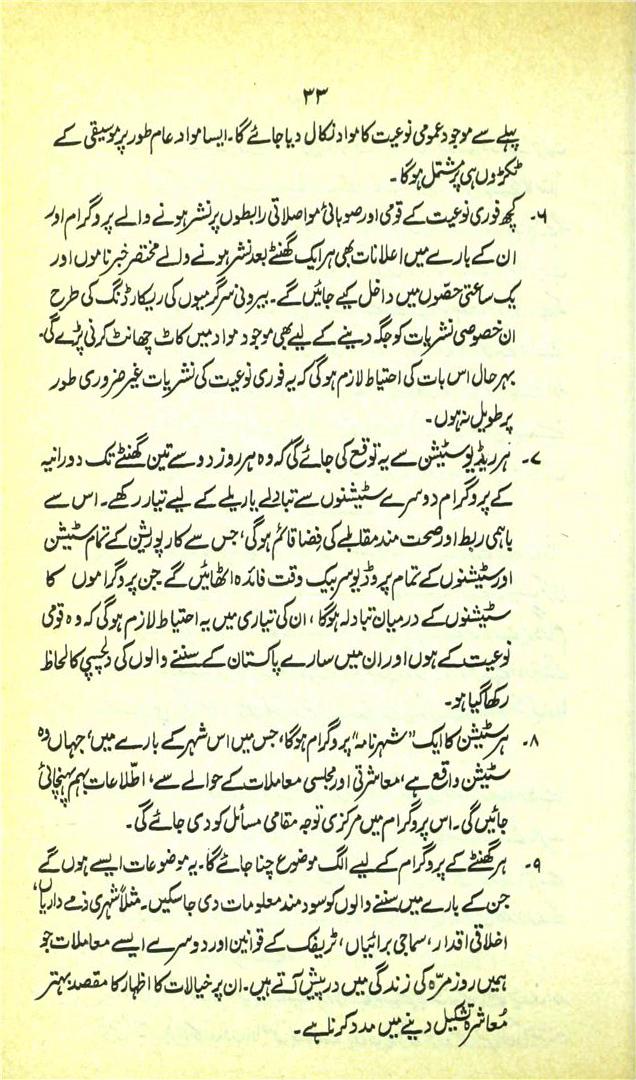 ۳۳
پہلے سے موجود عمومی نوعیت کا مواد نکال دیا جائے گا۔ ایسا مواد عام طور پر موسیقی کے
ٹکڑوں ہی پر مشتمل ہوگا۔
۶۔ کچھ فوری نوعیت کے قومی اور صوبائی مواصلاتی رابطوں پر نشر ہونے والے پروگرام اور
ان کے بارے میں اعلانات بھی ہر ایک گھنٹے بعد نشر ہونے والے مختصر خبرناموں اور
یک ساعتی حصّوں میں داخل کیے جائیں گے۔ بیرونی سرگرمیوں کی ریکارڈنگ کی طرح
ان خصوصی نشریات کو جگہ دینے کے لیے بھی موجود مواد میں کاٹ چھانٹ کرنی پڑے گی۔
بہرحال اس بات کی احتیاط لازم ہوگی کہ یہ فوری نوعیت کی نشریات غیر ضروری طور
پر طویل نہ ہوں۔
۷۔ ہر ریڈیو سٹیشن سے یہ توقع کی جائے گی کہ وہ ہر روز دو سے تین گھنٹے تک دورانیہ
کے پروگرام دوسرے سٹیشنوں سے تبادلے یا ریلے کے لیے تیار رکھے۔ اس سے
باہمی ربط اور صحت مند مقابلے کی فضا قائم ہوگی، جس سے کارپوریشن کے تمام سٹیشن
اور سٹیشنوں کے تمام پروڈیوسر بیک وقت فائدہ اٹھائیں گے۔ جن پروگراموں کا
سٹیشنوں کے درمیان تبادلہ ہوگا، ان کی تیاری میں یہ احتیاط لازم ہوگی کہ وہ قومی
نوعیت کے ہوں اور ان میں سارے پاکستان کے سننے والوں کی دلچسپی کا لحاظ
رکھا گیا ہو۔
۸۔ ہر سٹیشن کا ایک "شہر نامہ" پروگرام ہوگا، جس میں اس شہر کے بارے میں، جہاں وہ
سٹیشن واقع ہے، معاشرتی اور مجلسی معاملات کے حوالے سے، اطّلاعات بہم پہنچائی
جائیں گی۔ اس پروگرام میں مرکزی توجہ مقامی مسائل کو دی جائے گی۔
۹۔ ہر گھنٹے کے پروگرام کے لیے الگ موضوع چنا جائے گا۔ یہ موضوعات ایسے ہوں گے
جن کے بارے میں سننے والوں کو سود مند معلومات دی جا سکیں۔ مثلاً شہری ذمے داریاں،
اخلاقی اقدار، سماجی برائیاں، ٹریفک کے قوانین اور دوسرے ایسے معاملات جو
ہمیں روزمرّہ کی زندگی میں درپیش آتے ہیں۔ ان پر خیالات کا اظہار کا مقصد بہتر
مُعاشرہ تشکیل دینے میں مدد کرنا ہے۔